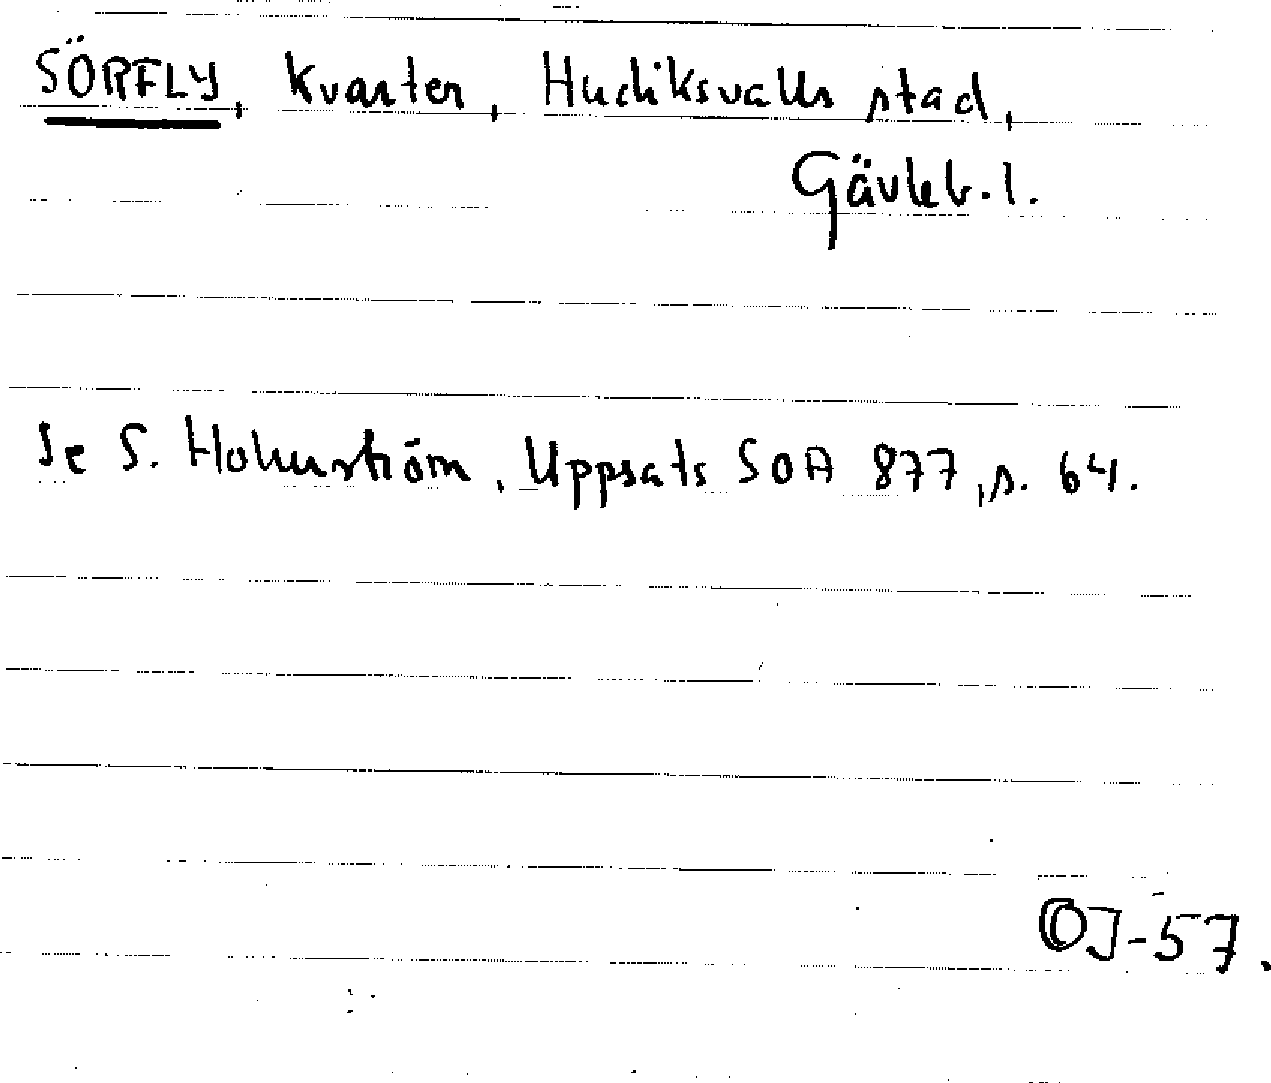 SÖRFLY, kvarter, Hudiksvalls stad,
Gävleb. l.
Se S. Holmström, Uppsats SOA 877, s. 64.
OJ-57.